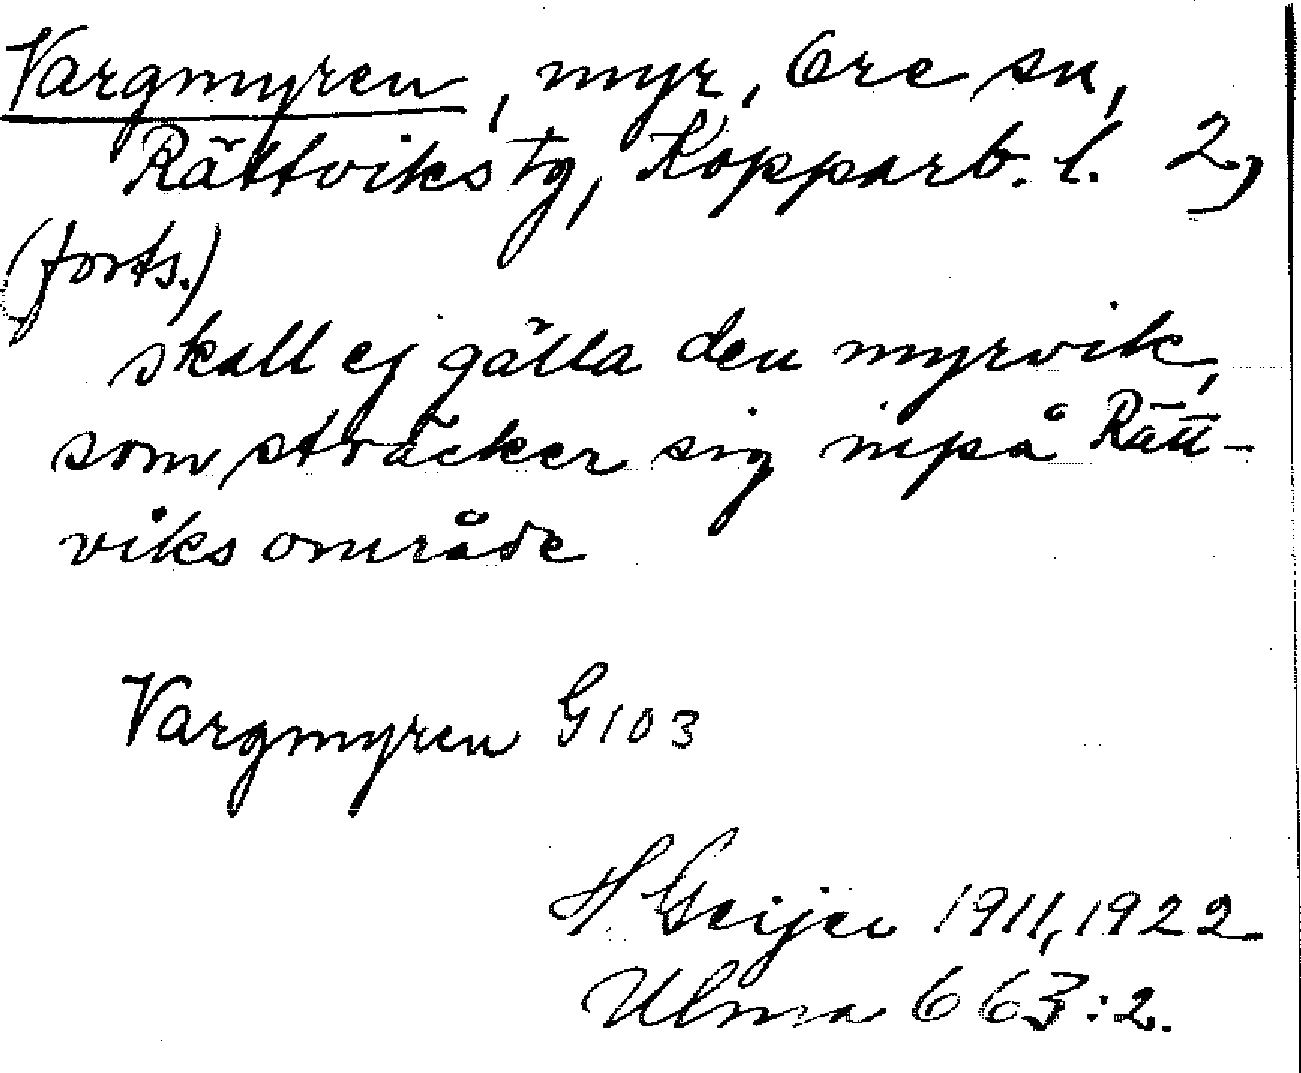 Vargmyren, myr, Ore sn,
Rättviks tg, Kopparb. l. 2,
(forts.)
skall ej gälla den myrvik,
som sträcker sig inpå Rätt-
viks område
Vargmyren G103
H Geijer 1911, 1922
Ulma 663:2.